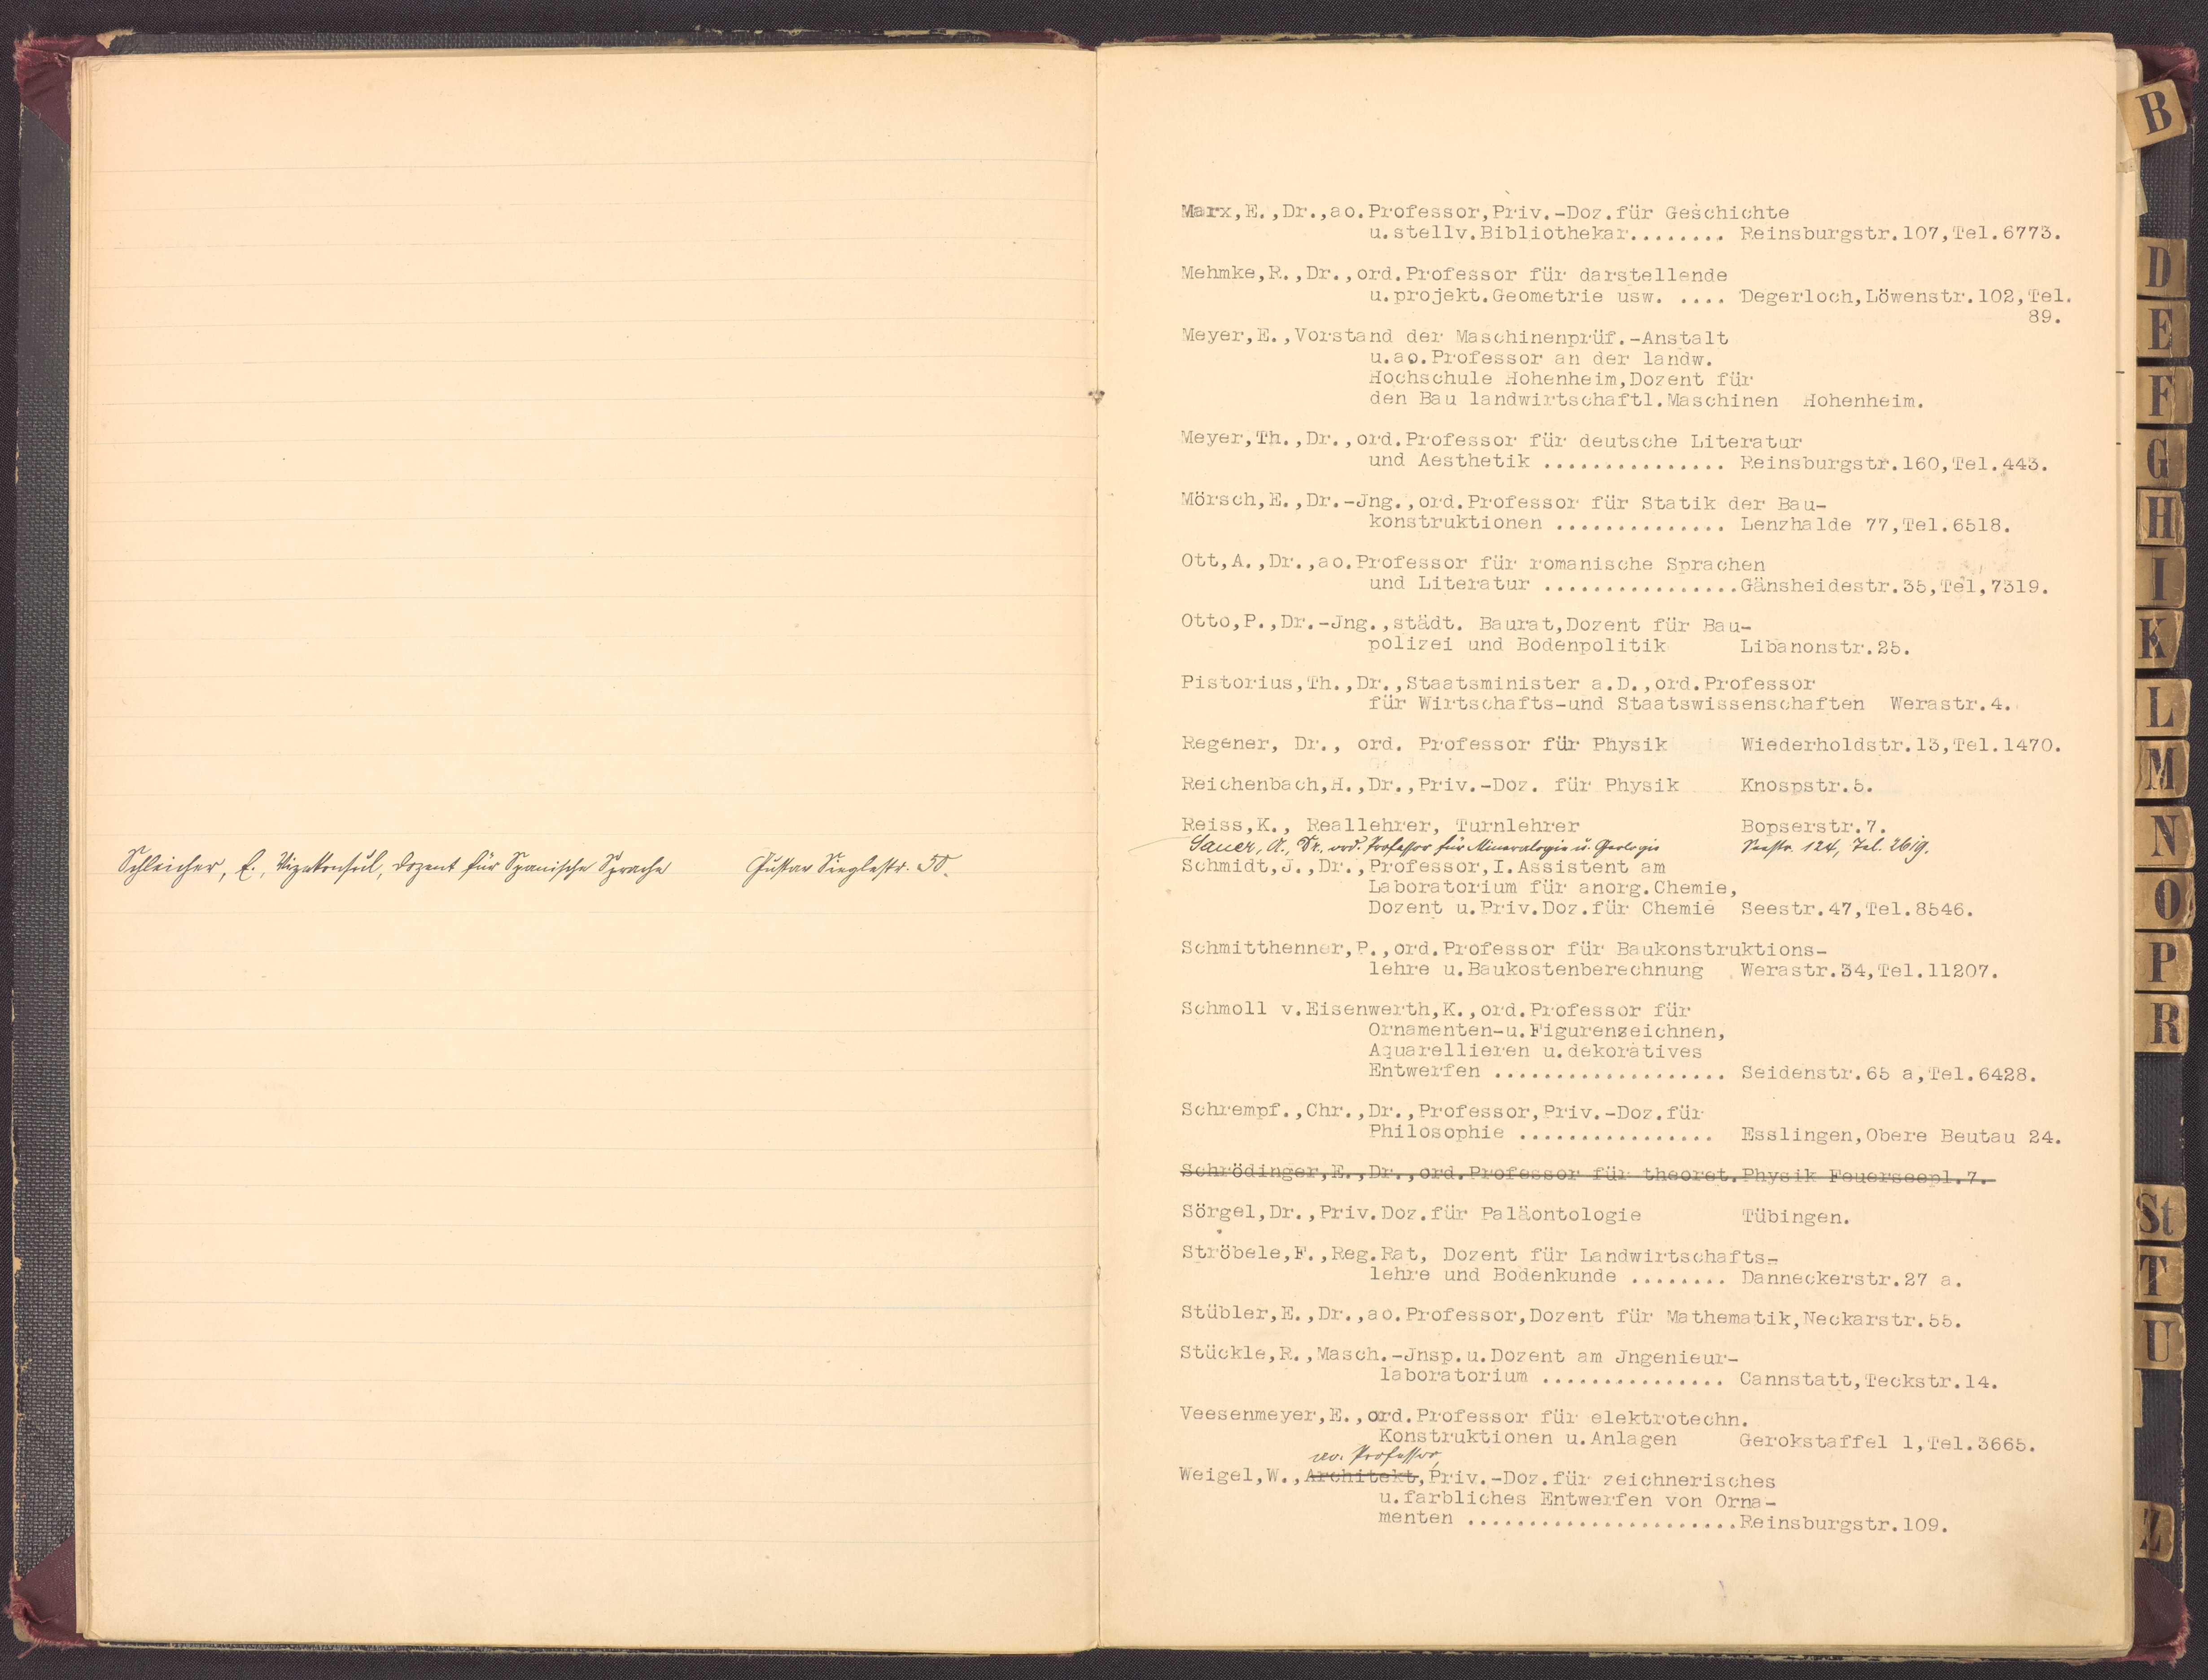 Schleicher, E., Vizekonsul, Dozent für Spanische Sprache Gustav Sieglestr. 50.
Marx,E.,Dr.,ao.Professor,Priv.-Doz.für Geschichte
u.stellv.Bibliothekar........ Reinsburgstr.107,Tel.6773.
Mehmke,R.,Dr.,ord.Professor für darstellende
u.projekt.Geometrie usw. .... Degerloch,Löwenstr.102,Tel.
89.
Meyer,E.,Vorstand der Maschinenprüf.-Anstalt
u.ao.Professor an der landw.
Hochschule Hohenheim,Dozent für
den Bau landwirtschaftl.Maschinen Hohenheim.
Meyer,Th.,Dr.,ord.Professor für deutsche Literatur
und Aesthetik ............... Reinsburgstr.160,Tel.443.
Mörsch,E.,Dr.-Jng.,ord.Professor für Statik der Bau-
konstruktionen .............. Lenzhalde 77,Tel.6518.
Ott,A.,Dr.,ao.Professor für romanische Sprachen
und Literatur ................Gänsheidestr.35,Tel,7319.
Otto,P.,Dr.-Jng.,städt. Baurat,Dozent für Bau-
polizei und Bodenpolitik Libanonstr.25.
Pistorius,Th.,Dr.,Staatsminister a.D.,ord.Professor
für Wirtschafts-und Staatswissenschaften Werastr.4.
Regener, Dr., ord. Professor für Physik Wiederholdstr.13,Tel.1470.
Reichenbach,H.,Dr.,Priv.-Doz. für Physik Knospstr.5.
Reiss,K., Reallehrer, Turnlehrer Bopserstr.7.
Sauer, A., Dr. ord. Professor für Mineralogie u. Geologie Seestr. 124, Tel. 2619.
Schmidt,J.,Dr.,Professor,I.Assistent am
Laboratorium für anorg.Chemie,
Dozent u.Priv.Doz.für Chemie Seestr.47,Tel.8546.
Schmitthenner,P.,ord.Professor für Baukonstruktions-
lehre u.Baukostenberechnung Werastr.34,Tel.11207.
Schmoll v.Eisenwerth,K.,ord.Professor für
Ornamenten-u.Figurenzeichnen,
Aquarellieren u.dekoratives
Entwerfen ................... Seidenstr.65 a,Tel.6428.
Schrempf.,Chr.,Dr.,Professor,Priv.-Doz.für
Philosophie ................ Esslingen,Obere Beutau 24.
Schrödinger,E.,Dr.,ord.Professor für theoret.Physik Feuerseepl.7.
Sörgel,Dr.,Priv.Doz.für Paläontologie Tübingen.
Ströbele,F.,Reg.Rat, Dozent für Landwirtschafts-
lehre und Bodenkunde ........ Danneckerstr.27 a.
Stübler,E.,Dr.,ao.Professor,Dozent für Mathematik,Neckarstr.55.
Stückle,R.,Masch.-Jnsp.u.Dozent am Jngenieur-
laboratorium ............... Cannstatt,Teckstr.14.
Veesenmeyer,E.,ord.Professor für elektrotechn.
Konstruktionen u.Anlagen Gerokstaffel 1,Tel.3665.
ao. Professor,
Weigel,W.,Architekt,Priv.-Doz.für zeichnerisches
u.farbliches Entwerfen von Orna-
menten ......................Reinsburgstr.109.
B
D
E
F
G
H
I
K
L
M
N
O
P
R
St
T
U
Z